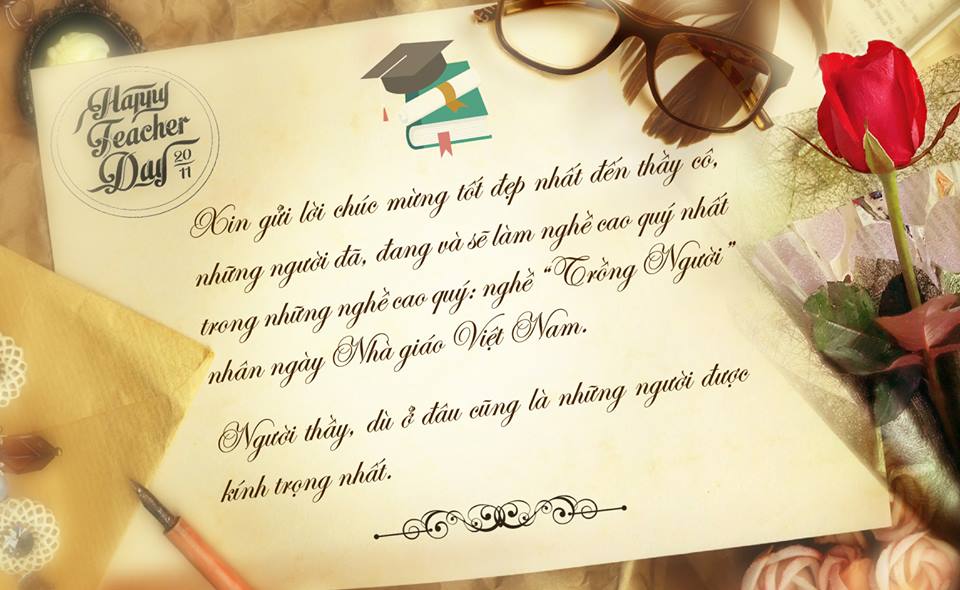 Happy
Teacher
Day 20
11
Xin gửi lời chúc mừng tốt đẹp nhất đến thầy cô,
những người đã, đang và sẽ làm nghề cao quý nhất
trong những nghề cao quý: nghề “Trồng Người”
nhân ngày Nhà giáo Việt Nam.
Người thầy, dù ở đâu cũng là những người được
kính trọng nhất.